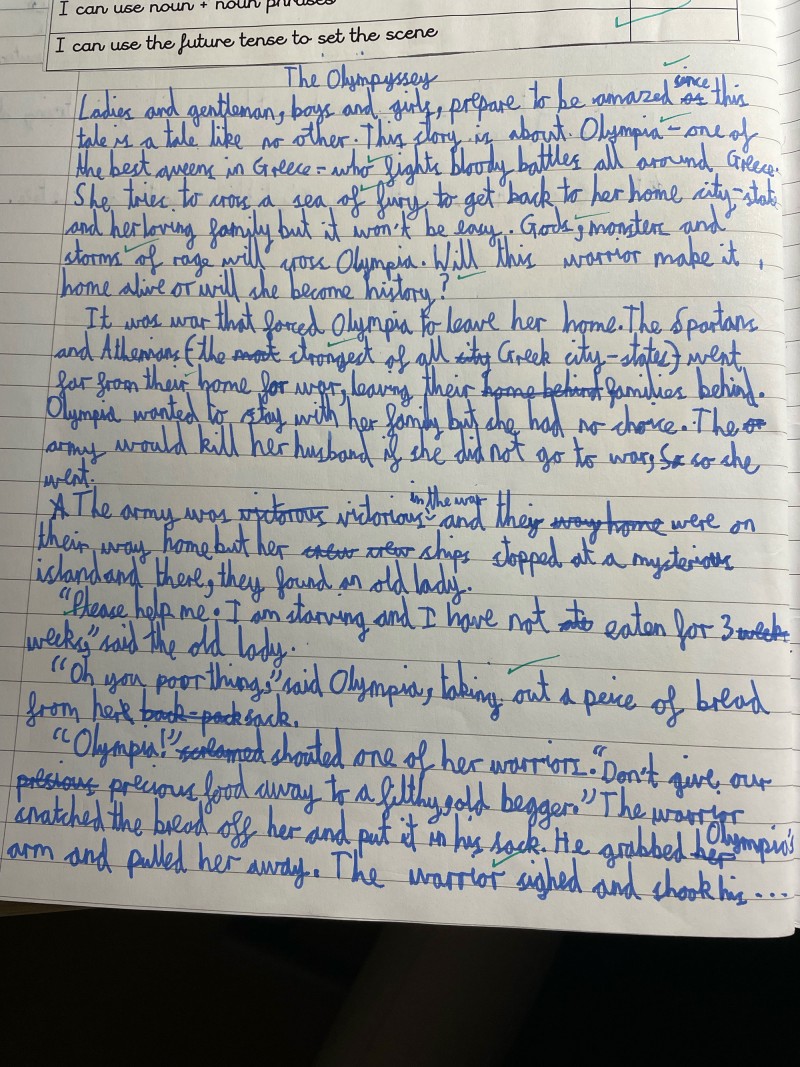 I can use noun + noun phrases
I can use the future tense to set the scene
The Olympyssey
since
Ladies and gentleman, boys and girls, prepare to be amazed as this
tale is a tale like no other. This story is about Olympia – one of
the best queens in Greece – who fights bloody battles all around Greece.
She tries to cross a sea of fury to get back to her home city-state
and her loving family but it won't be easy. Gods, monsters and
storms of rage will cross Olympia. Will this warrior make it
home alive or will she become history?
It was war that forced Olympia to leave her home. The Spartans
and Athenians (the most strongest of all city Greek city-states) went
far from their home for war, leaving their home behind families behind.
Olympia wanted to stay with her family but she had no choice. The or
army would kill her husband if she did not go to war; So so she
went.
in the war
A The army was victorous victorious and they way home were on
their way home but her crew crew ships stopped at a mysterious
island and there, they found an old lady.
"Please help me. I am starving and I have not ate eaten for 3 week
weeks," said the old lady.
"Oh you poor thing," said Olympia, taking out a peice of bread
from her back-pack sack.
"Olympia!" screamed shouted one of her warriors. "Don't give our
presious precious food away to a filthy, old begger." The warrior
snatched the bread off her and put it in his sack. He grabbed her Olympia's
arm and pulled her away. The warrior sighed and shook his ...